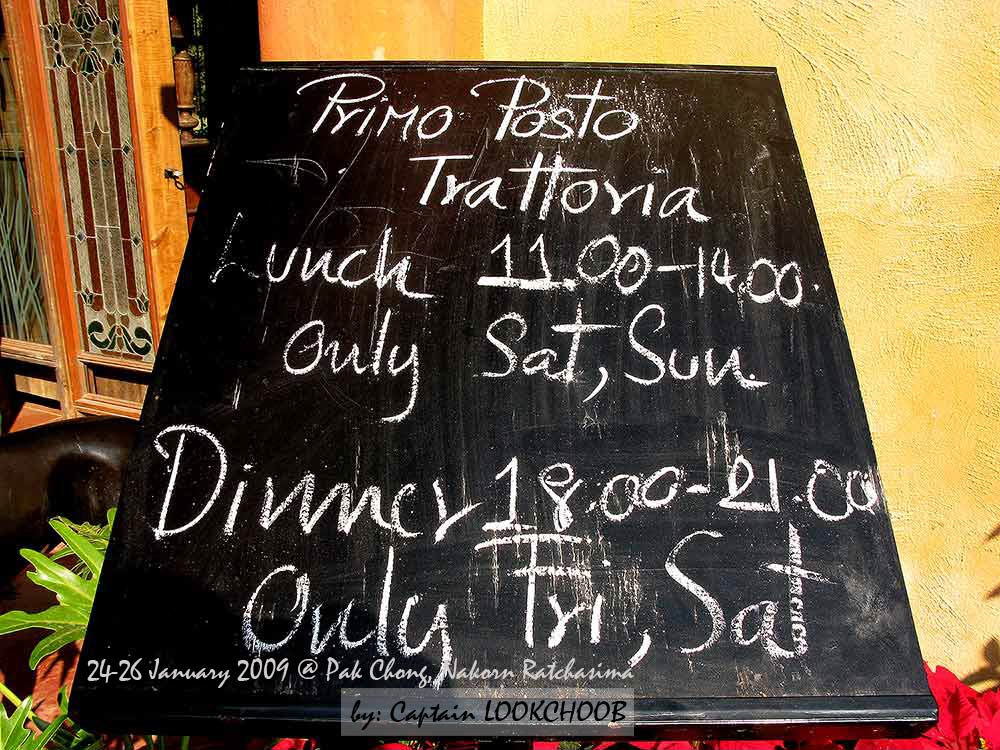 Primo Posto
Trattoria
Lunch 11.00-14.00.
Only Sat, Sun
Dinner 18.00-21.00
Only Fri, Sat
24-26 January 2009 @ Pak Chong, Nakorn Ratchasima
by: Captain LOOKCHOOB